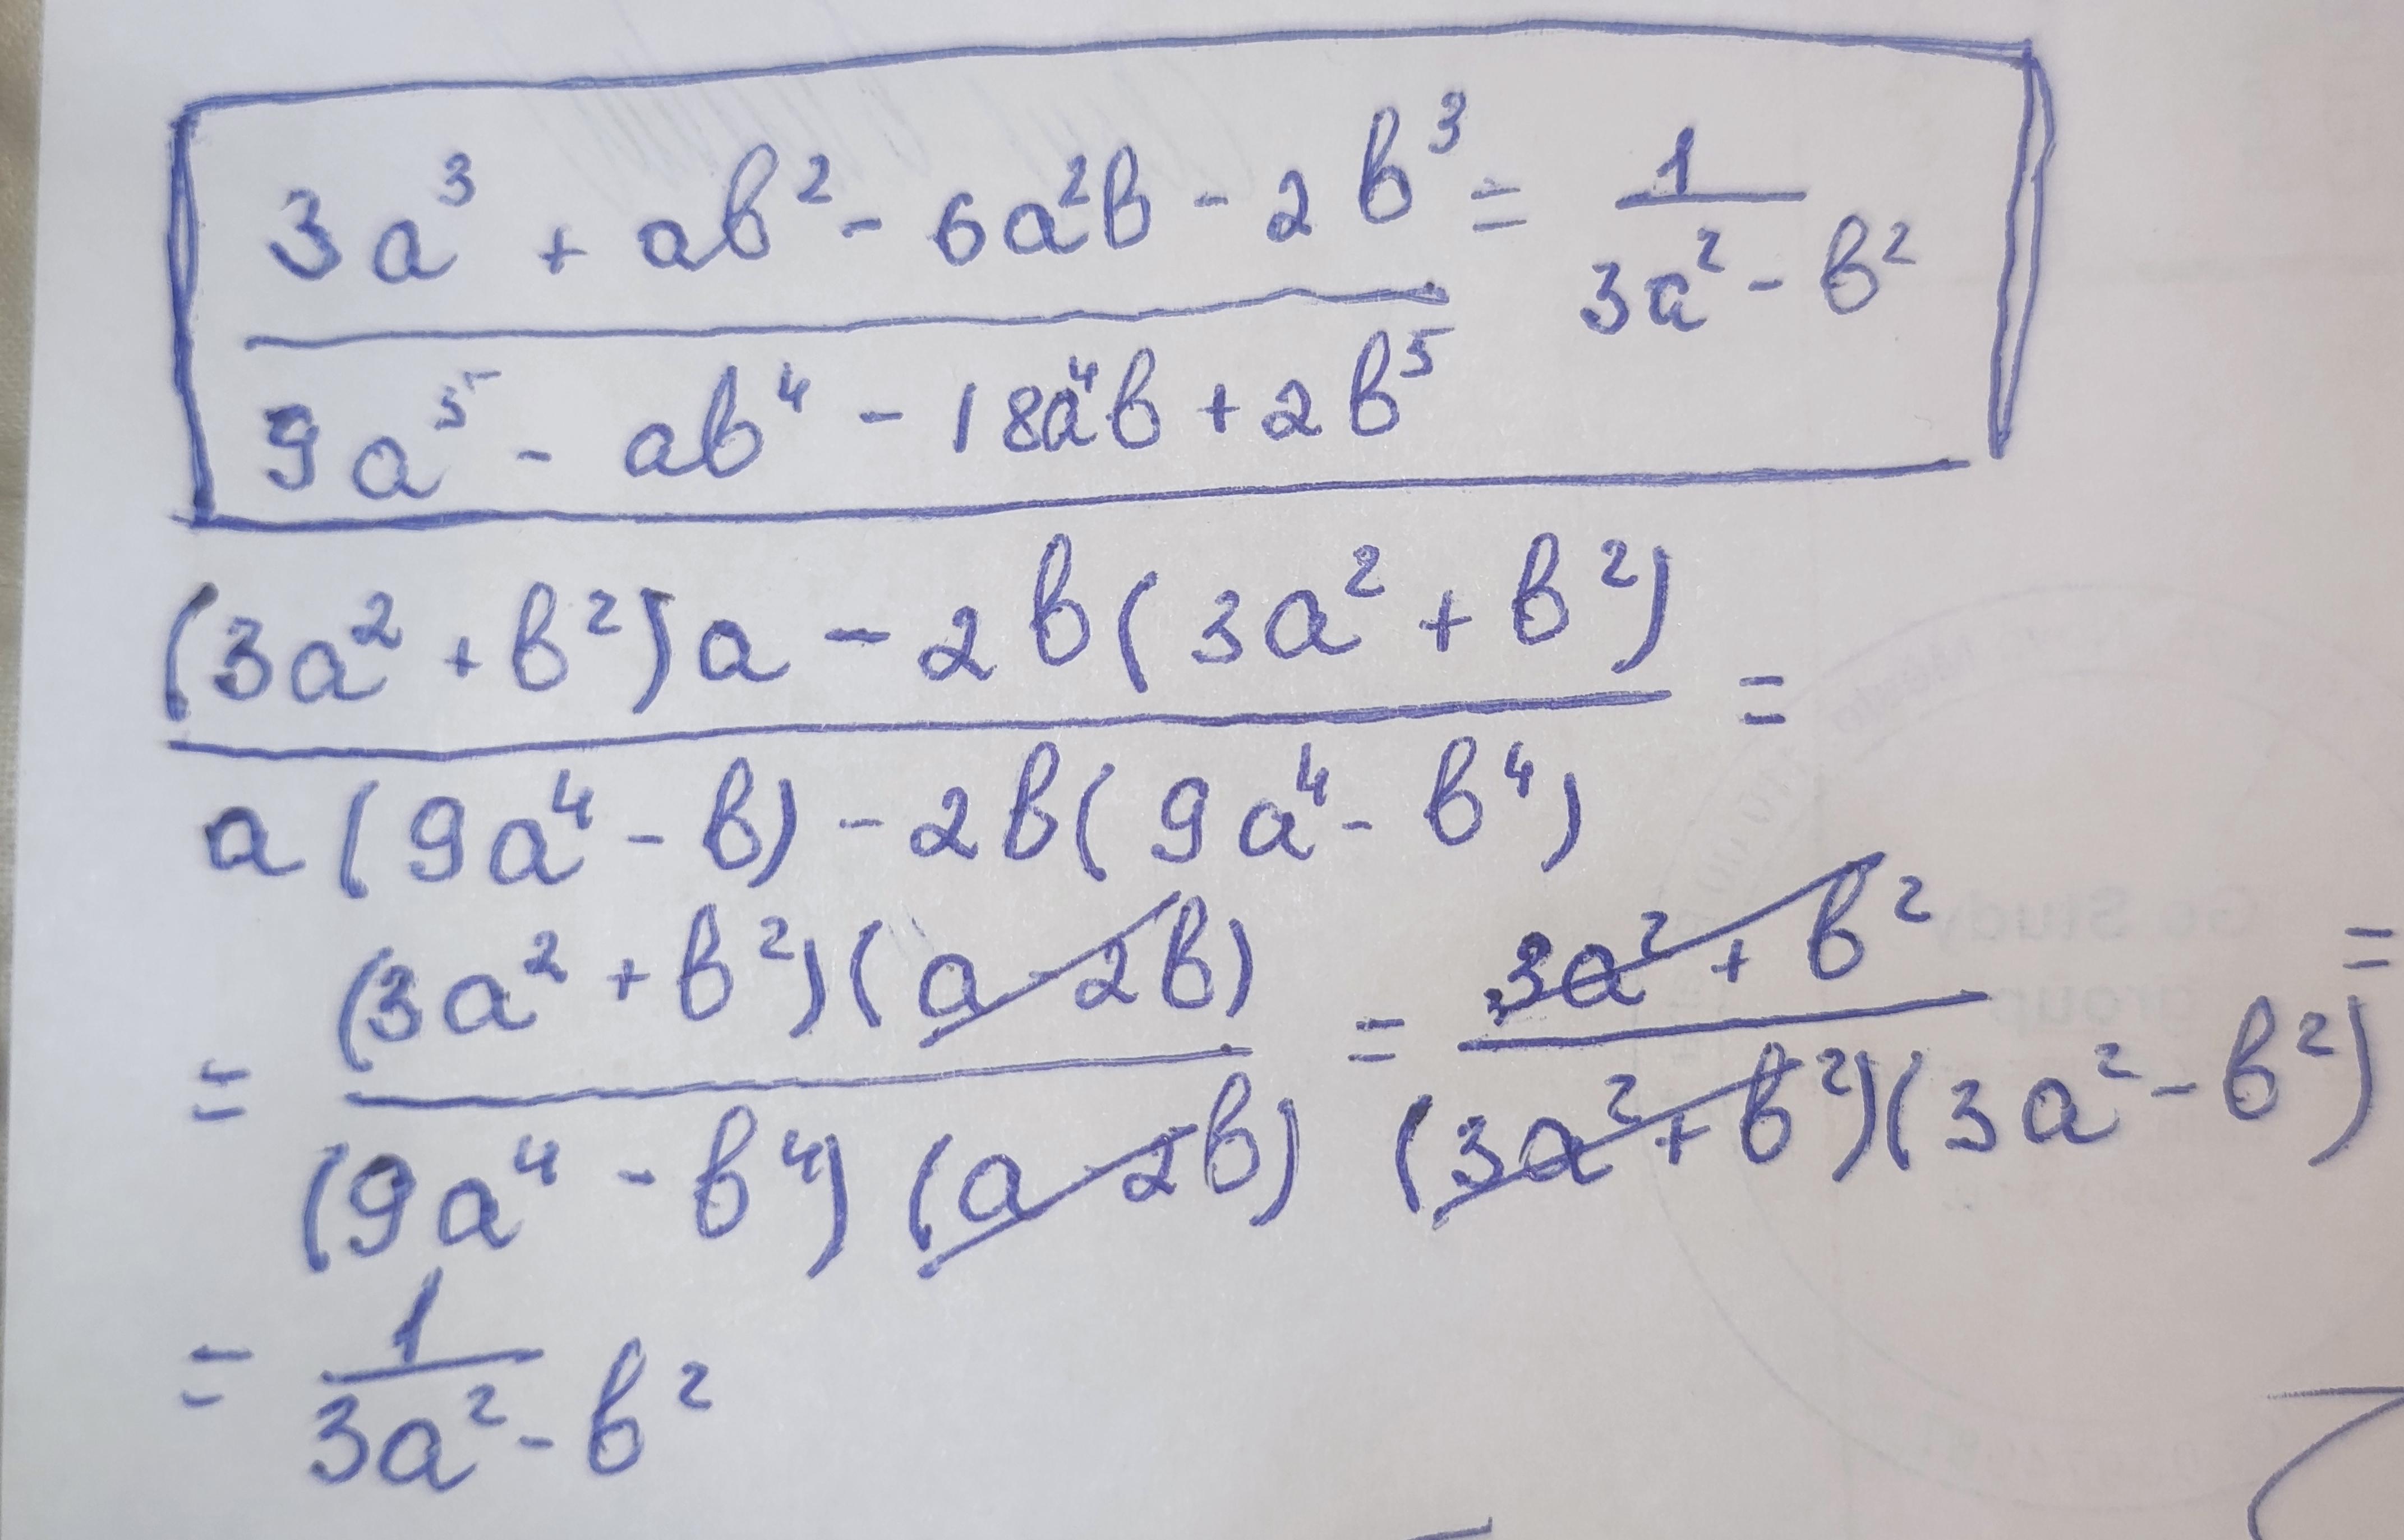 3a³ + ab² - 6a²b - 2b³ = 1
9a⁵ - ab⁴ - 18a⁴b + 2b⁵ 3a² - b²
(3a² + b²)a - 2b(3a² + b²) =
a(9a⁴ - b) - 2b(9a⁴ - b⁴)
= (3a² + b²)(a - 2b) = 3a² + b² =
(9a⁴ - b⁴)(a - 2b) (3a² + b²)(3a² - b²)
= 1
3a² - b²